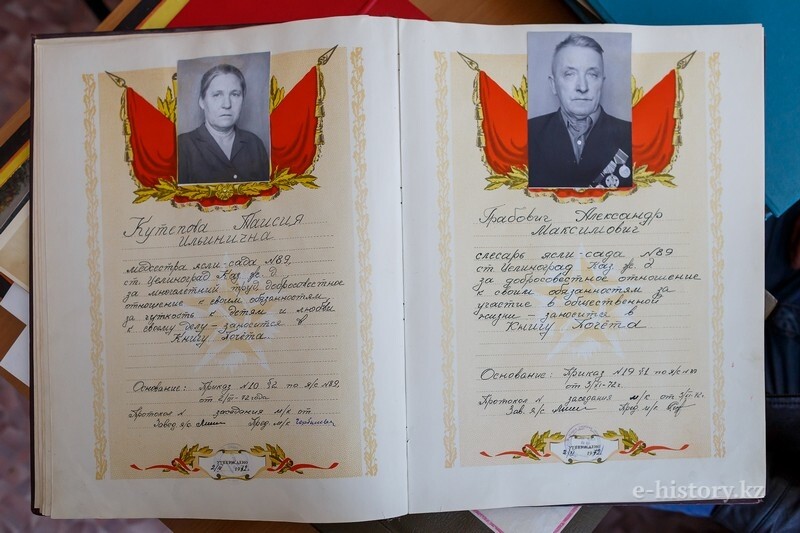 Кутепова Таисия
Ильинична
медсестра ясли-сада №89,
ст. Целиноград Каз. ж. д
за многолетний труд, добросовестное
отношение к своим обязанностям,
за чуткость к детям и любовь
к своему делу – заносится в
Книгу Почёта.
Основание: Приказ №10 §2 по я/с №89.
от 2/III-72 года
Протокол № заседания м/к от
Завод. я/с Пред. м/к
УТВЕРЖДЕНО
1972
Грабович Александр
Максимович
слесарь ясли-сада №89
ст. Целиноград Каз. ж. д
за добросовестное отношение
к своим обязанностям за
участие в общественной
жизни – заносится в
Книгу Почёта
Основание: Приказ №19 §1 по я/с №89
от 3/VI-72г.
Протокол № заседания м/к от
Зав. я/с Пред. м/к
1972
e-history.kz